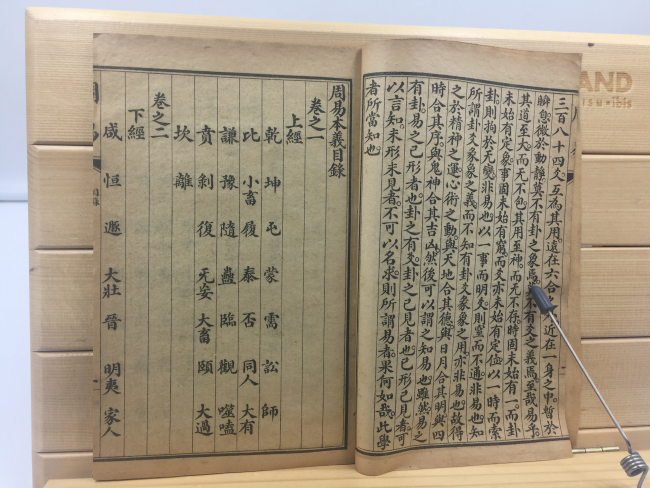 三百八十四爻互為其用遠在六合之近在一身之中暫於
瞬息微於動靜莫不有卦之象焉不有爻之義焉至哉易乎
其道至大而无不包其用至神而无不存時固未始有一而卦
未始有定象事固未始有窮而爻亦未始有定位以一時而索
卦則拘於无變非易也以一事而明爻則窒而不通非易也知
所謂卦爻彖象之義而不知有卦爻彖象之用亦非易也故得
之於精神之運心術之動與天地合其德與日月合其明與四
時合其序與鬼神合其吉凶然後可以謂之知易也雖然易之
有卦易之已形者也卦之有爻卦之已見者也已形已見者可
以言知未形未見者不可以名求則所謂易者果何如哉此學
者所當知也
周易本義目錄
卷之一
上經
乾 坤 屯 蒙 需 訟 師
比 小畜 履 泰 否 同人 大有
謙 豫 隨 蠱 臨 觀 噬嗑
賁 剝 復 无妄 大畜 頤 大過
坎 離
卷之二
下經
咸 恒 遯 大壯 晉 明夷 家人
目錄
AND
ibis